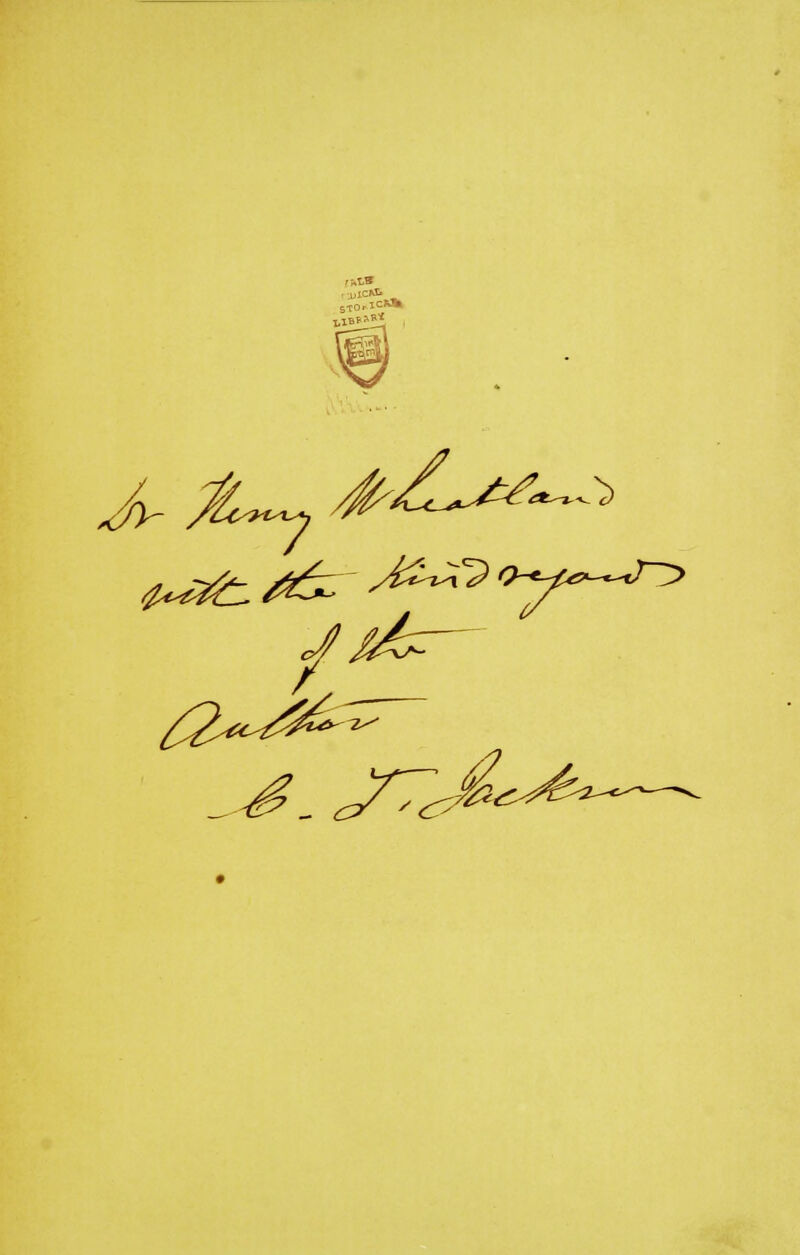 YALE
MEDICAL
HISTORICAL
LIBRARY
Dr Henry Wheatland
with the Kind regards
of the
Author
C. T. Jackson